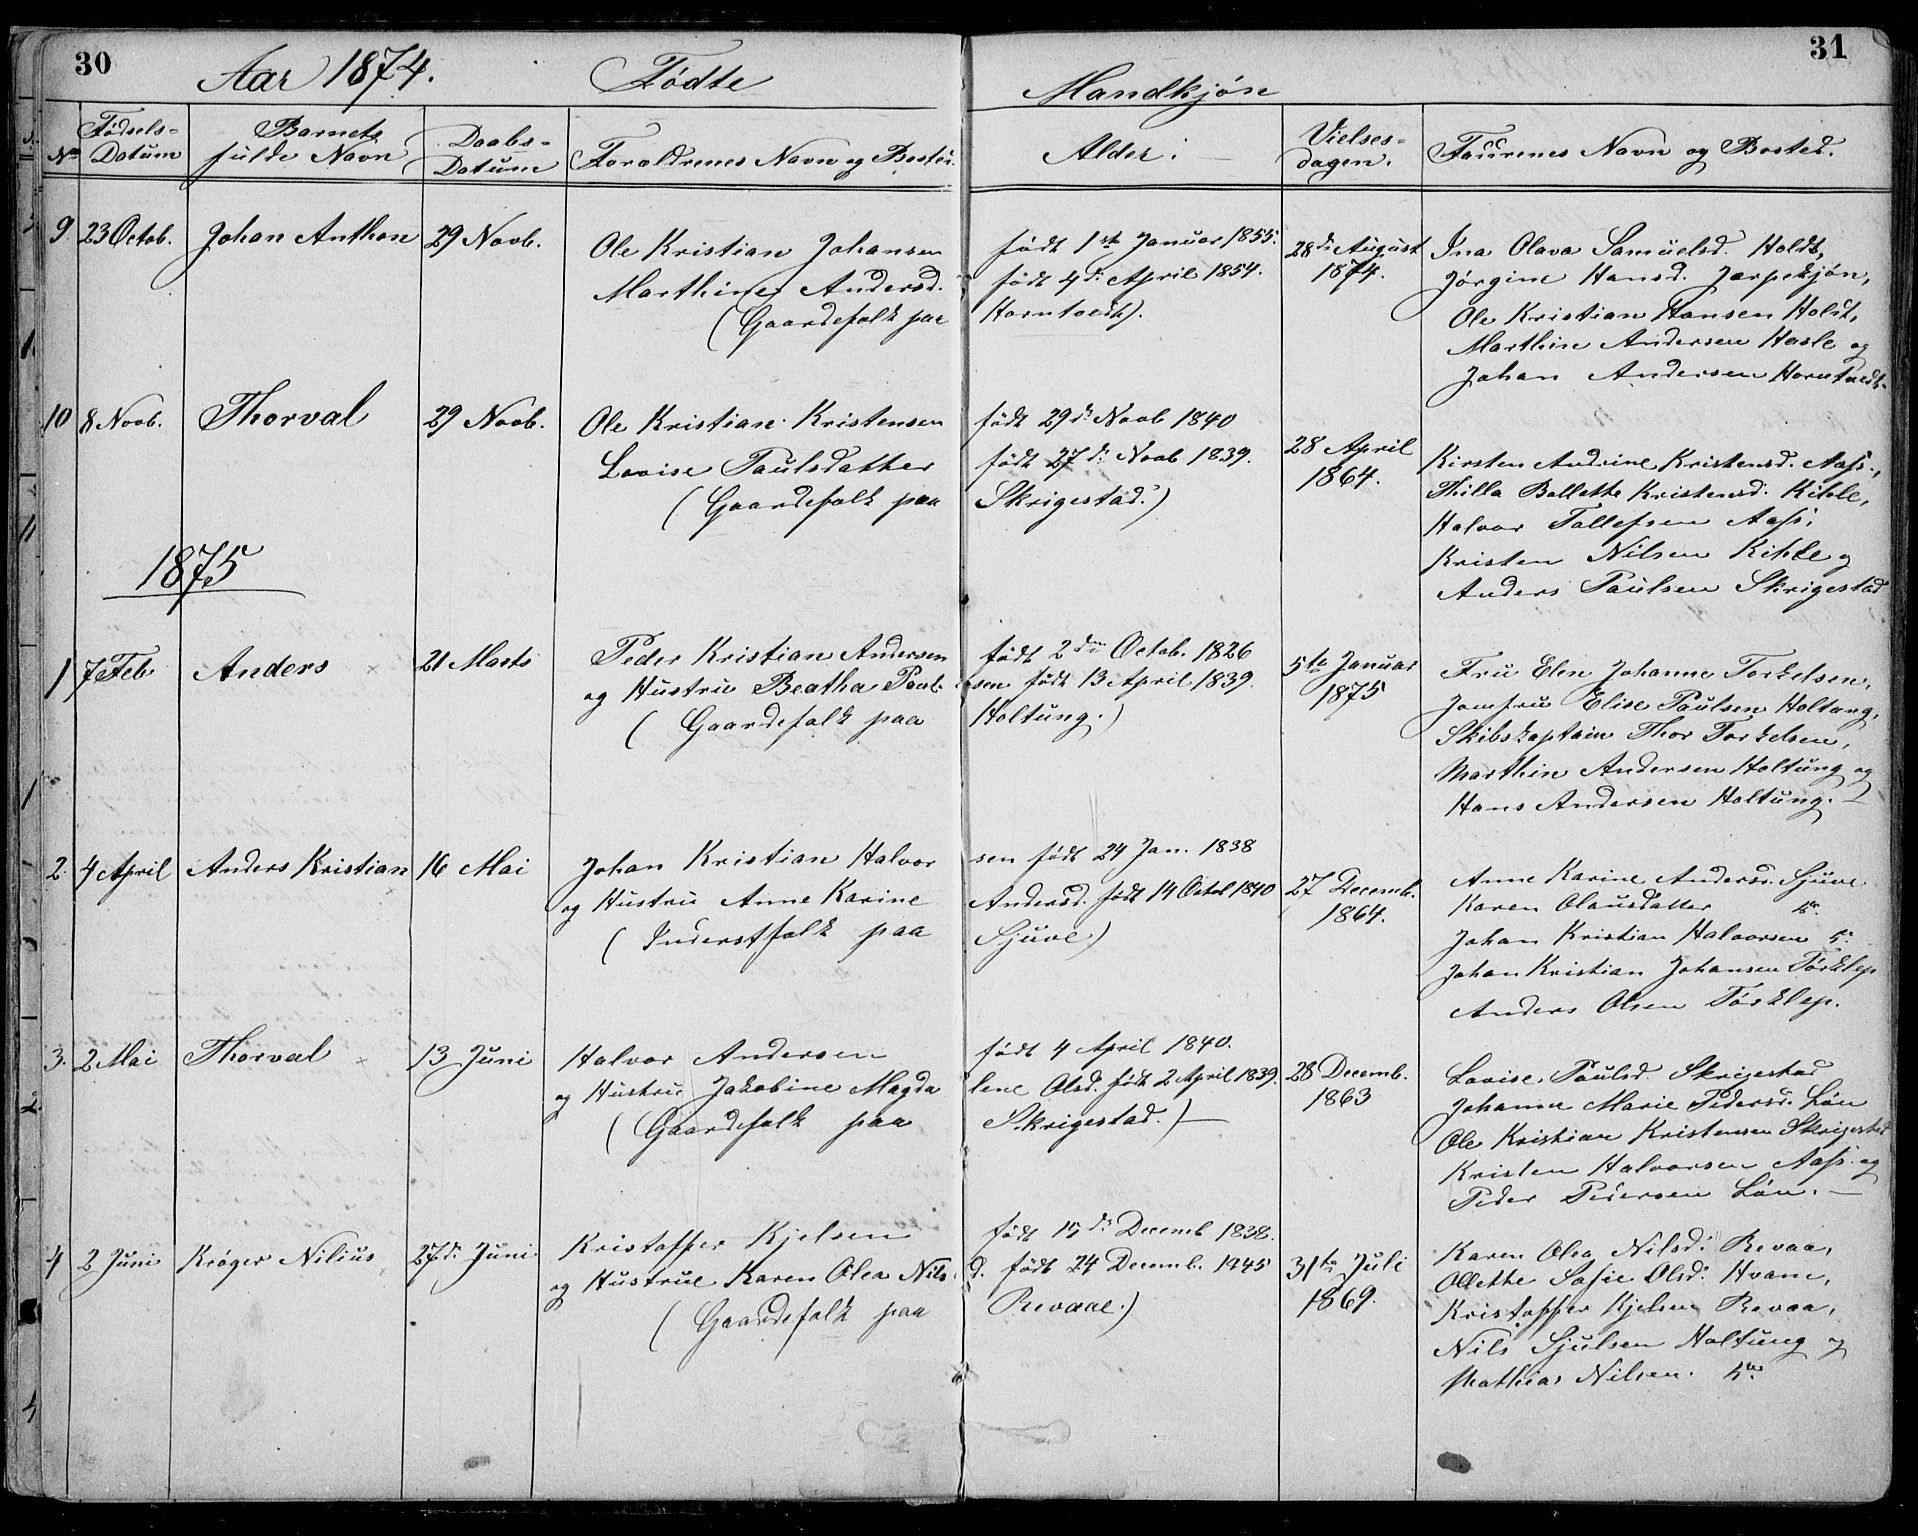 30
Aar 1874. Fødte
Mandkjøn
31
No Fødsels-Datum Barnets fulde Navn Daabs-Datum Forældrenes Navn og Bested. Alder: Vielses-dagen. Faddrenes Navn og Bosted.
9 23 Octob. Johan Anthon 29 Novb.
Ole Kristian Johansen født 1ste Januar 1855.
Marthine Andersd. født 4de April 1854.
(Gaardefolk paa Horntvedt).
28de August
1874.
Ina Olava Samuelsd. Holdt,
Jørgine Hansd. Jærpekjøn,
Ole Kristian Hansen Holst,
Marthin Andersen Hasle og
Johan Andersen Horntvedt.
10 8 Novb. Thorval 29 Novb.
Ole Kristian Kristensen født 29de Novb 1840
Lovise Paulsdatter født 27de Novb 1839.
(Gaardefolk paa Skrigestad.)
28 April
1864.
Kirsten Andrine Kristensd. Aass.,
Thilla Bollette Kristensd. Kihle,
Halvor Tollefsen Aass,
Kristen Nilsen Kihle og
Anders Paulsen Skrigestad
1875
1 7 Feb. Anders 21 Marts
Peder Kristian Andersen født 2den Octob. 1826
og Hustru Beatha Paulsen født 13 April 1839.
(Gaardefolk paa Holtung.)
5te Januar
1875
Fru Elen Johanne Torkelsen,
Jomfru Elise Paulsen Holtung,
Skibskaptain Thor Torkelsen,
Marthin Andersen Holtung og
Hans Andersen Holtung. —
2. 4 April Anders Kristian 16 Mai
Johan Kristian Halvorsen født 24 Jan. 1838
og Hustru Anne Karine Andersd. født 14 Octob 1840
(Inderstfolk paa Sjuve)
27 Decemb.
1864.
Anne Karine Andersd. Sjuve
Karen Olausdatter
Johan Kristian Halvorsen
Johan Kristian Johansen Tørklep
Anders Olsen Tørklep.
3. 2 Mai Thorval 13 Juni
Halvor Andersen født 4 April 1840.
og Hustru Jakobine Magdalene Olsd. født 2 April 1839.
(Gaardefolk paa Skrigestad.) —
28 Decemb.
1863
Lovise Paulsd. Skrigestad
Johanne Marie Pedersd. Løn
Ole Kristian Kristensen Skrigestad
Kristen Halvorsen Aass. og
Peder Pedersen Løn. —
4 2 Juni Krøger Nilius 27de Juni
Kristoffer Kjelsen født 15de Decemb 1838.
og Hustrue Karen Olea Nilsd. født 24 Decemb. 1845
(Gaardefolk paa Revaae.)
31te Juli
1869.
Karen Olea Nilsd. Revaa,
Ollette Sofie Olsd. Hvam,
Kristoffer Kjelsen Revaa,
Nils Sjulsen Holtung og
Mathias Nilsen.